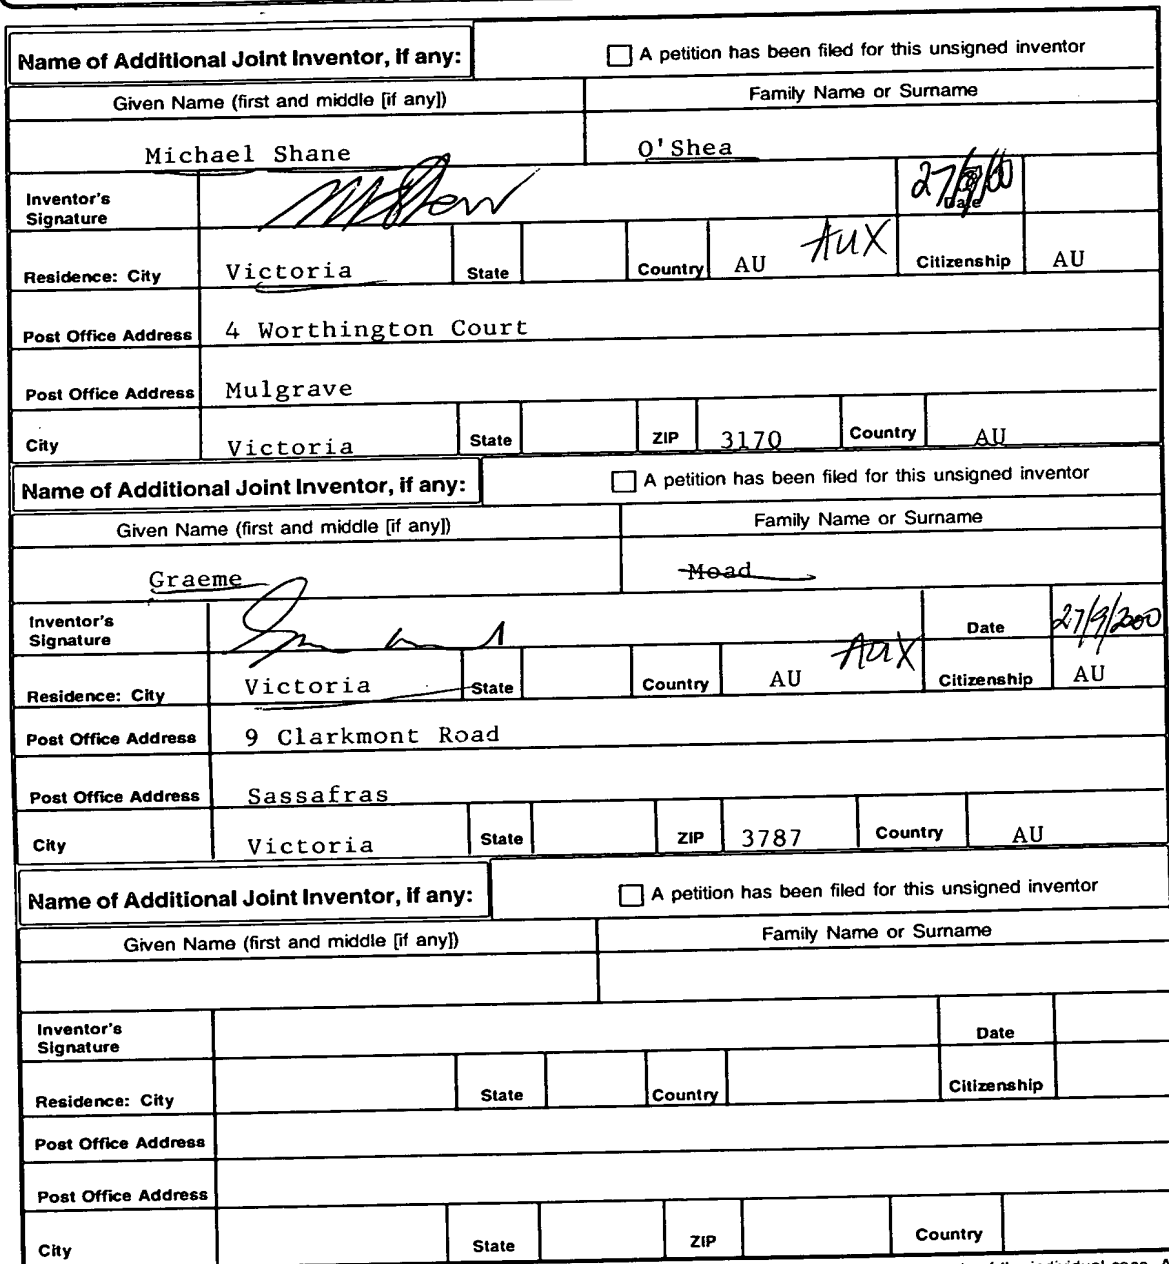 Name of Additional Joint Inventor, if any: A petition has been filed for this unsigned inventor
Given Name (first and middle [if any]) Family Name or Surname
Michael Shane O'Shea
Inventor's Signature Date
Residence: City Victoria State Country AU AUX Citizenship AU
Post Office Address 4 Worthington Court
Post Office Address Mulgrave
City Victoria State ZIP 3170 Country AU
Name of Additional Joint Inventor, if any: A petition has been filed for this unsigned inventor
Given Name (first and middle [if any]) Family Name or Surname
Graeme Moad
Inventor's Signature Date 27/9/2000
Residence: City Victoria State Country AU AUX Citizenship AU
Post Office Address 9 Clarkmont Road
Post Office Address Sassafras
City Victoria State ZIP 3787 Country AU
Name of Additional Joint Inventor, if any: A petition has been filed for this unsigned inventor
Given Name (first and middle [if any]) Family Name or Surname
Inventor's Signature Date
Residence: City State Country Citizenship
Post Office Address
Post Office Address
City State ZIP Country